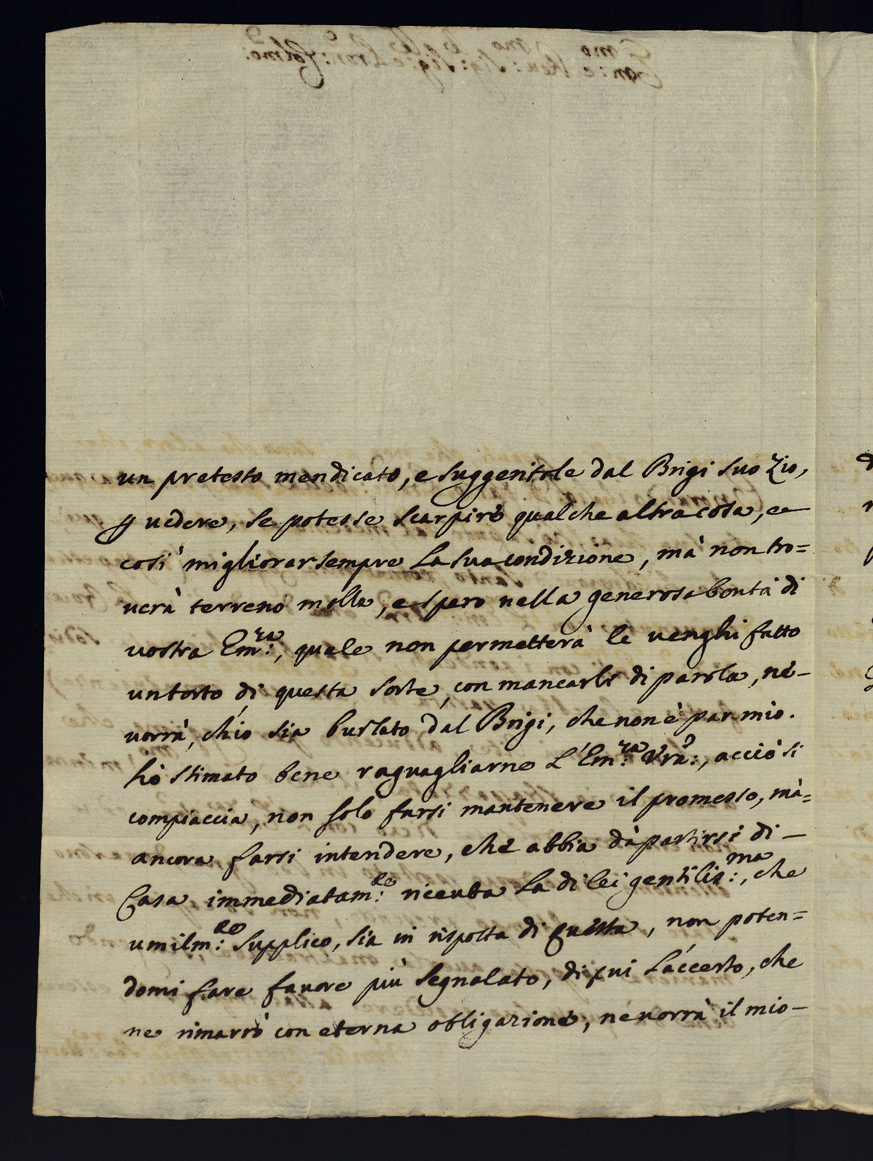 un pretesto mendicato, e suggeritole dal Brigi suo Zio,
p uedere, se potesse scarpire qualche altra cosa, e
così migliorar sempre la sua condizione, mà non tro=
uerà terreno molle, e spero nella generosa bontà di
vostra Em:ra, quale non permetterà le venghi fatto
un torto di questa sorte, con mancarli di parola, nè
vorrà, ch'io sia burlato dal Brigi, che non è par mio.
hò stimato bene raguagliarne L'Em:ra Vra:, acciò si
compiaccia, non solo farsi mantenere il promesso, mà=
ancora farsi intendere, che abbia dà partirsi di
Casa immediatam:te riceuta la di lei gentilis:ma, che
umilm:te supplico, sia in risposta di questa, non poten=
domi fare fauore più segnalato, di cui l'accerto, che
ne rimarrò con eterna obligazione, ne vorrà il mio